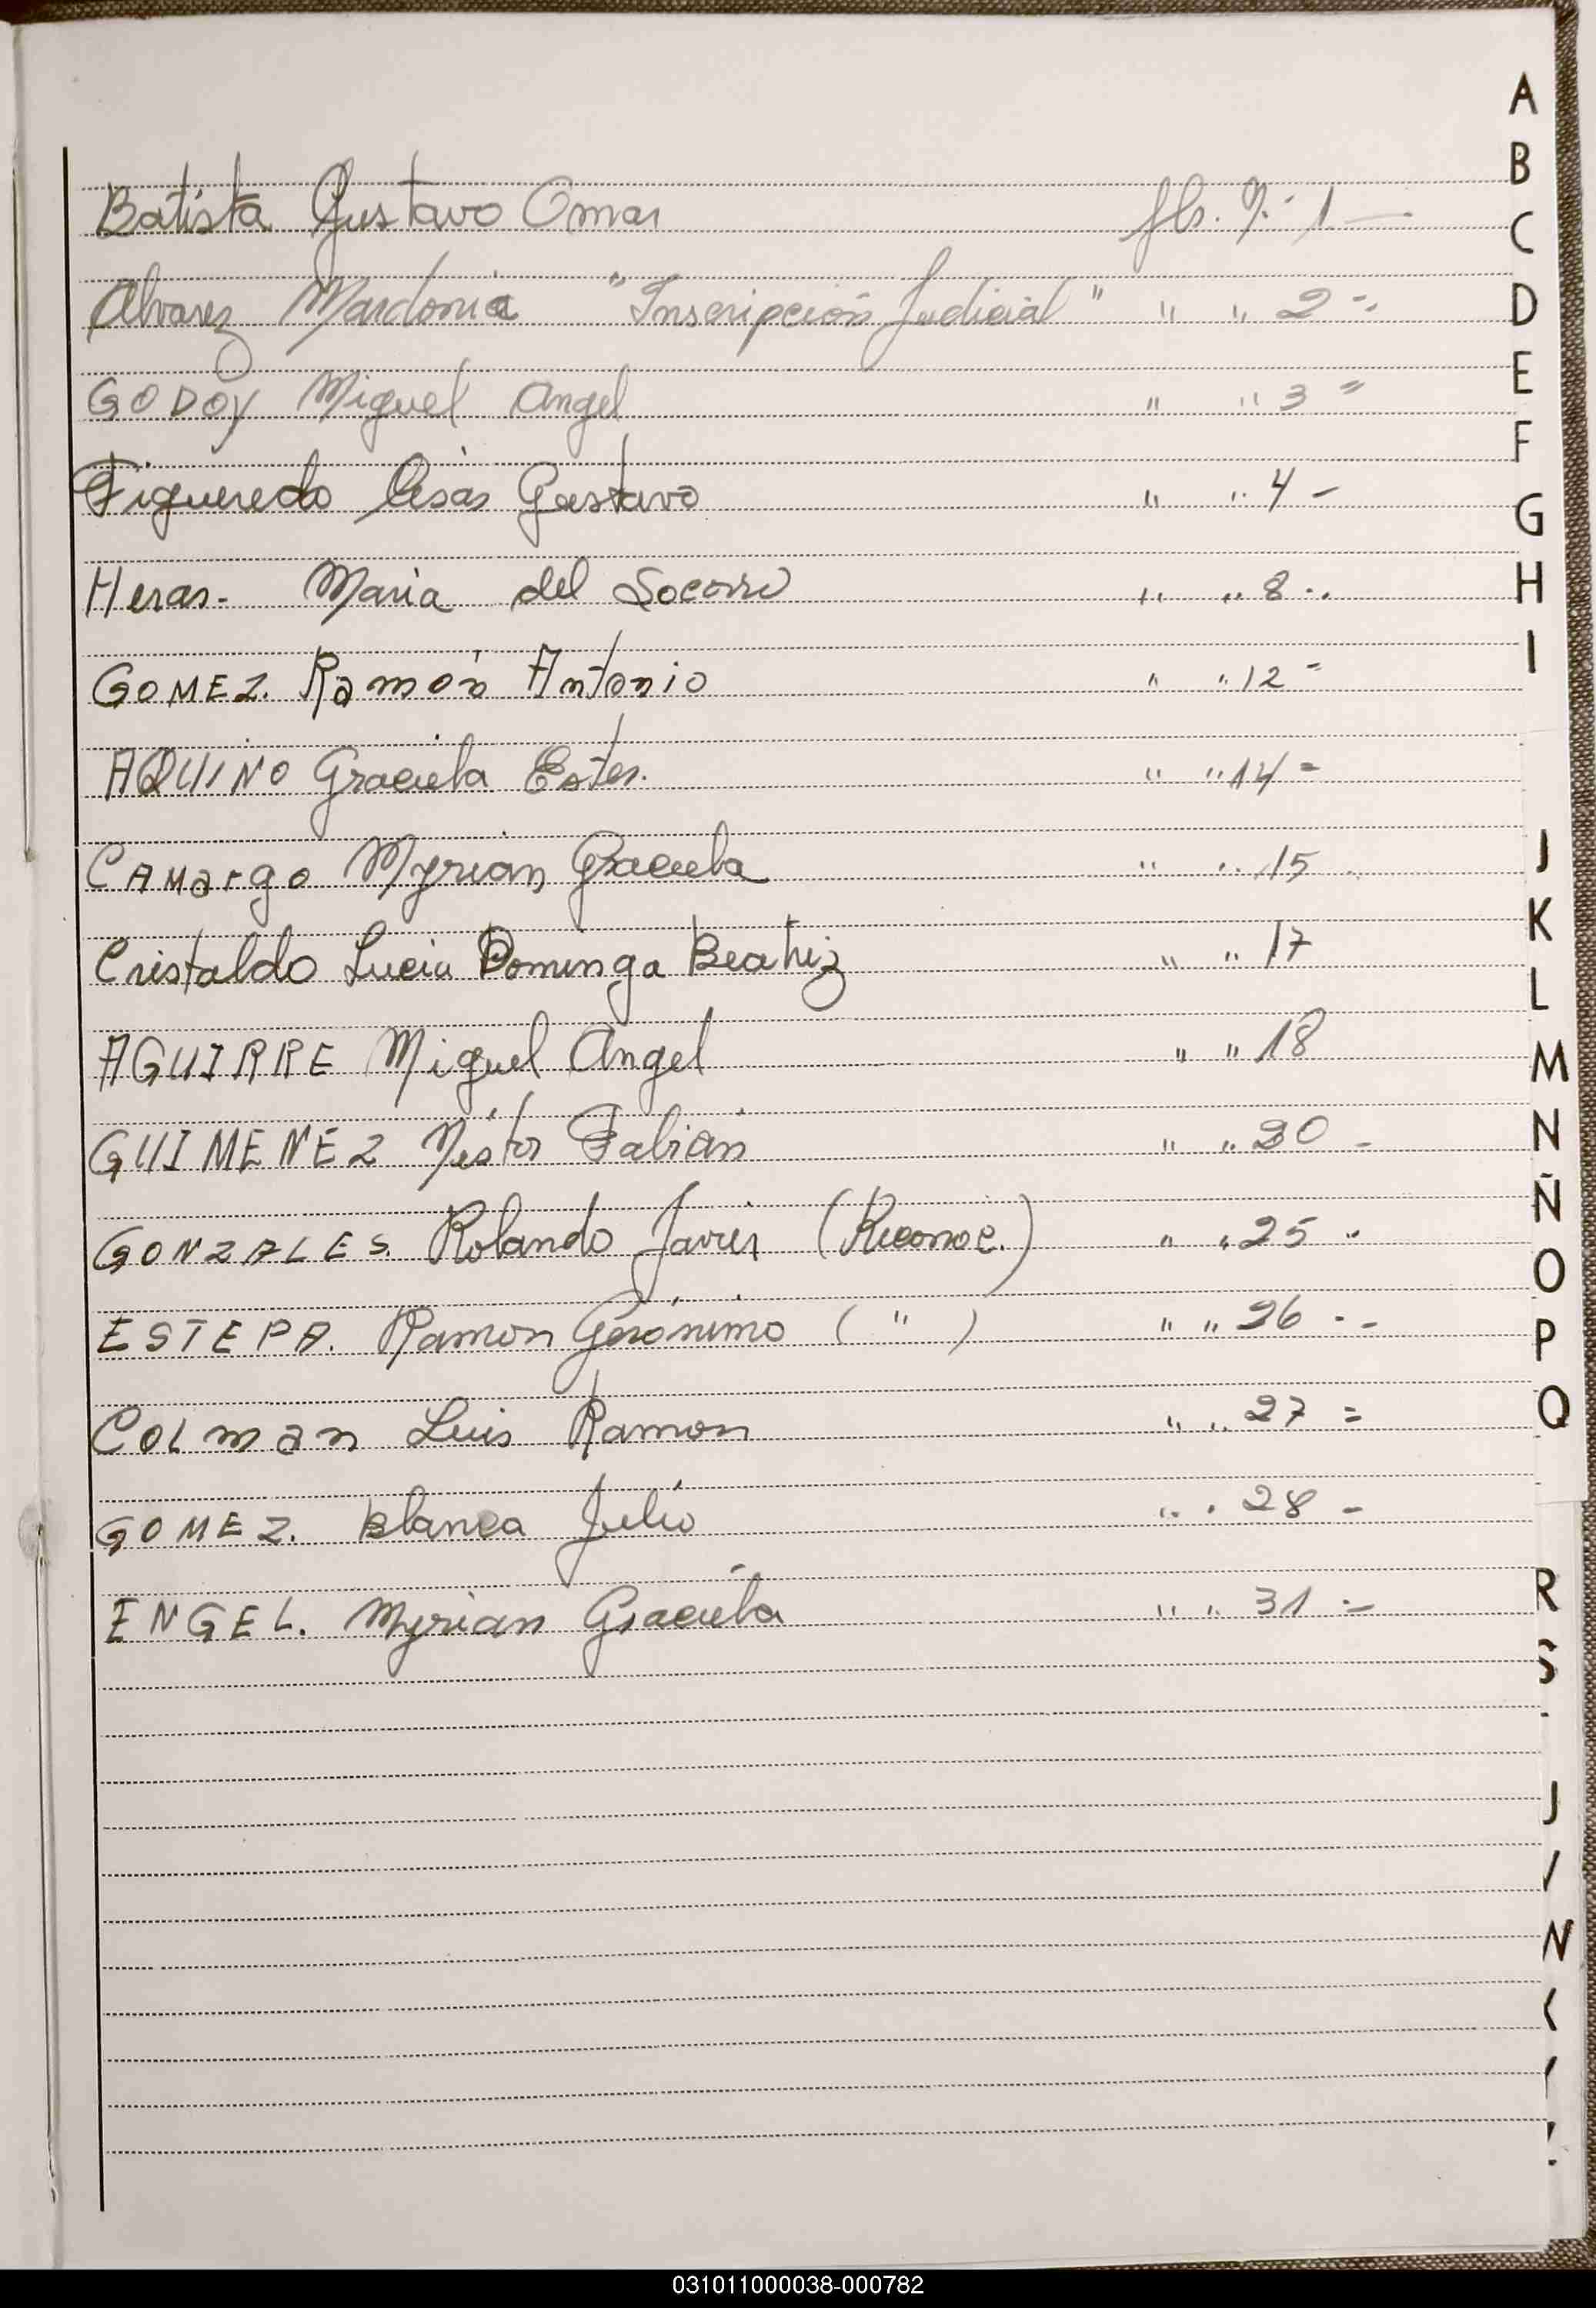 Batista Gustavo Omar fls. Nº 1 —
Alvarez Mardonia "Inscripción Judicial" " " 2 =
GODOY Miguel Angel " " 3 =
Figueredo César Gustavo " " 4 -
Heras - Maria del Socorro " " 8 -
GOMEZ. Ramón Antonio " " 12 =
AQUINO Graciela Ester. " " 14 =
CAMargo Myrian Graciela " " 15 -
Cristaldo Lucia Dominga Beatriz " " 17
AGUIRRE Miguel Angel " " 18
GUIMENEZ Néstor Fabian " " 20 -
GONZALES. Rolando Javier (Reconoc.) " " 25 -
ESTEPA. Ramon Gerónimo ( " ) " " 26 - -
Colman Luis Ramon " " 27 =
GOMEZ. Blanca Julio " " 28 -
ENGEL. Myrian Graciela " " 31 =
A
B
C
D
E
F
G
H
I
J
K
L
M
N
Ñ
O
P
Q
R
S
031011000038-000782